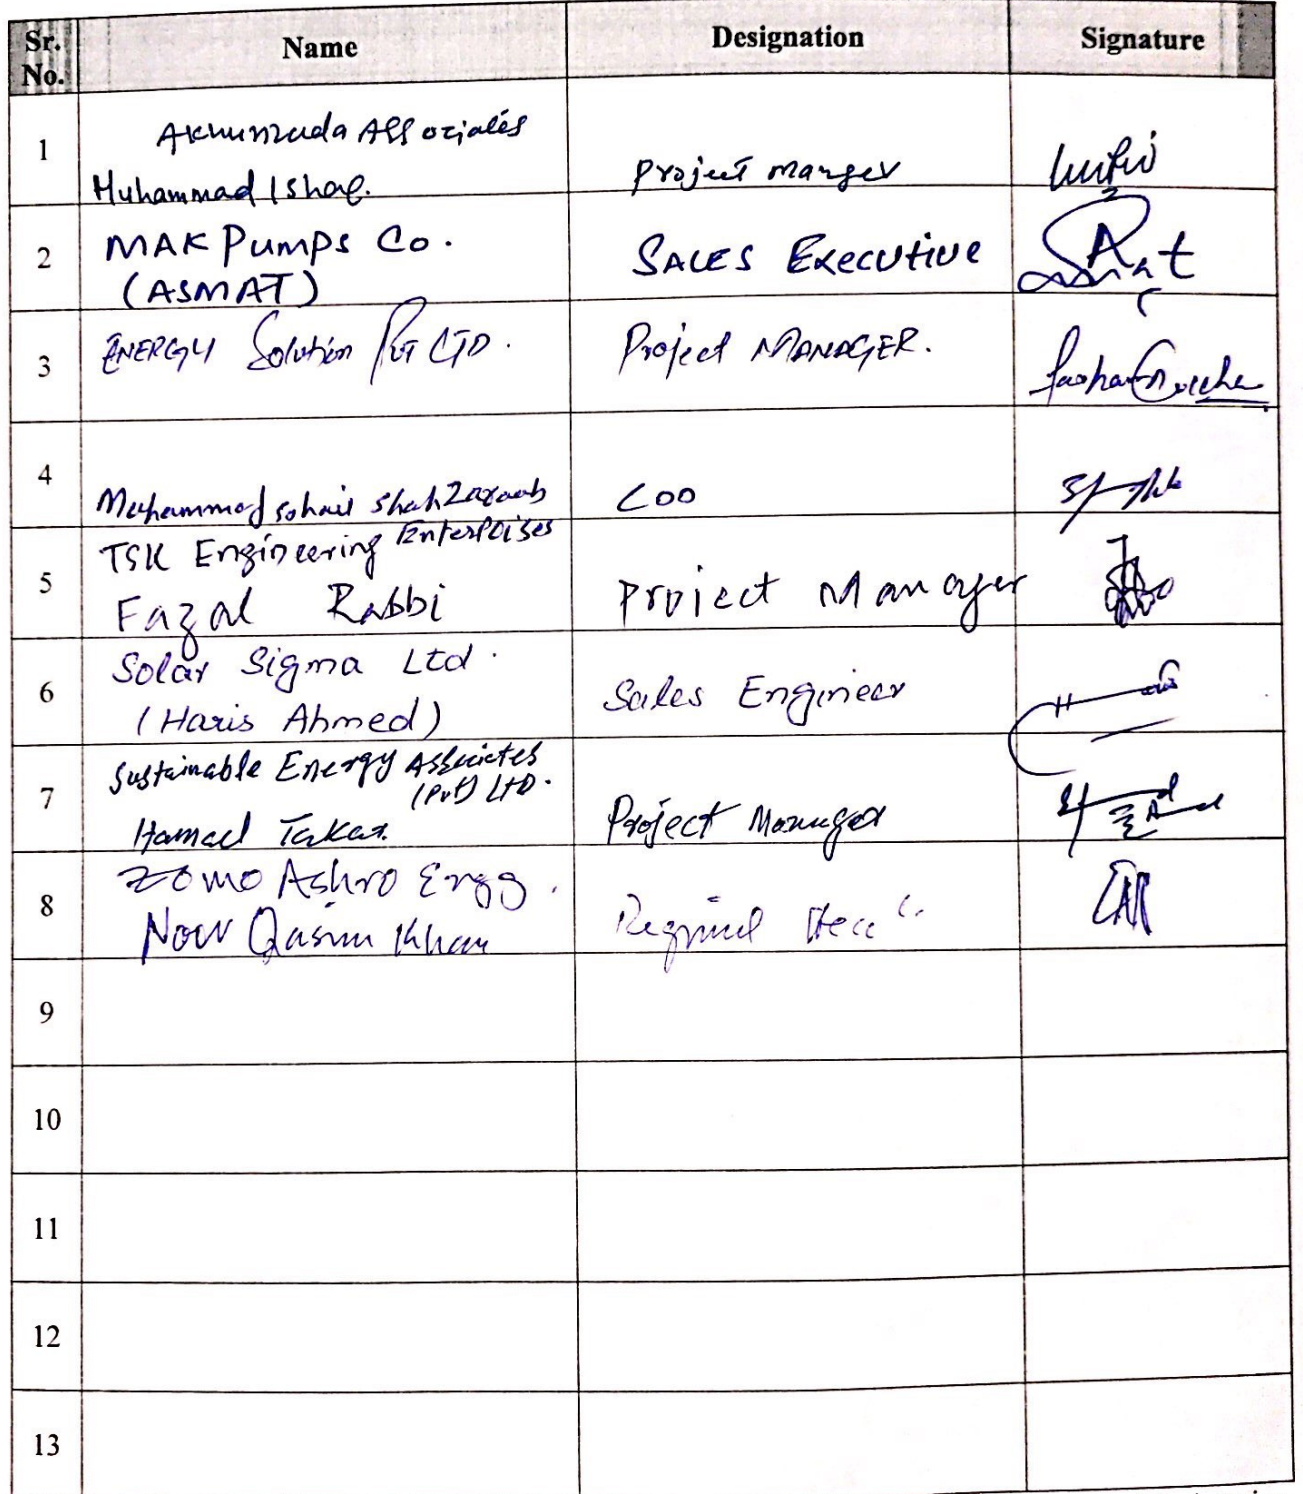 Sr. No. Name Designation Signature
1 Akhunzada Associates
Muhammad Ishaq. Project manger
2 MAK Pumps Co. SALES Executive
(ASMAT)
3 ENERGY Solution Pvt LTD. Project MANAGER.
4 Muhammad Sohail Shah Zaraab COO
TSK Engineering Enterprises
5 Fazal Rabbi Project Manager
Solar Sigma Ltd.
6 (Haris Ahmed) Sales Engineer
Sustainable Energy Associates
7 (Pvt) LtD.
Hamad Project Manager
Zomo Ashro Engg.
8 Noor Qasim Khan Regional
9
10
11
12
13